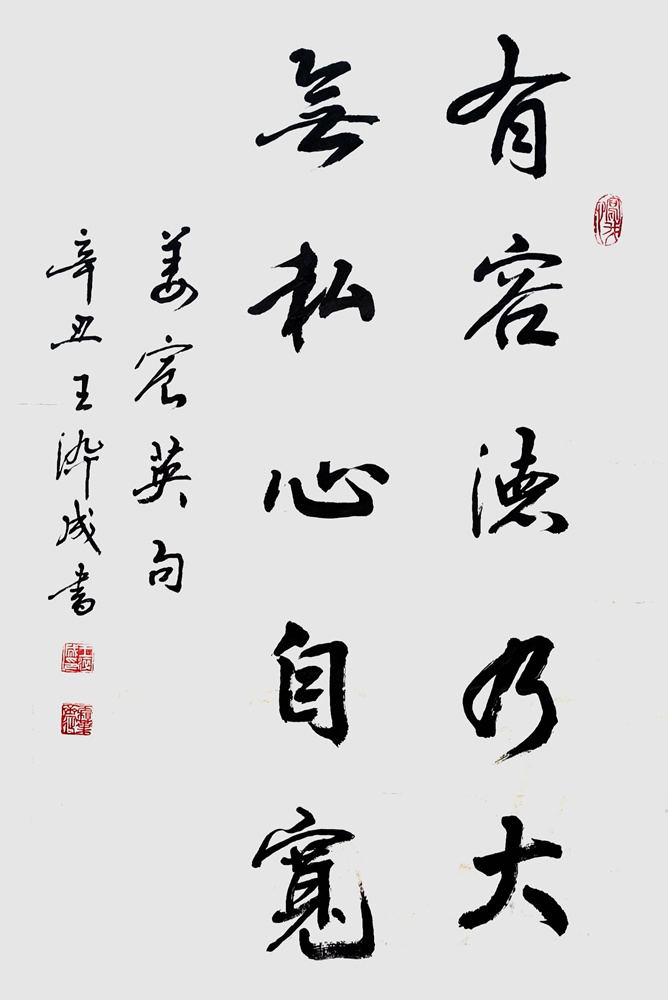 有容德乃大
無私心自寬
姜宸英句
辛丑王淬成书